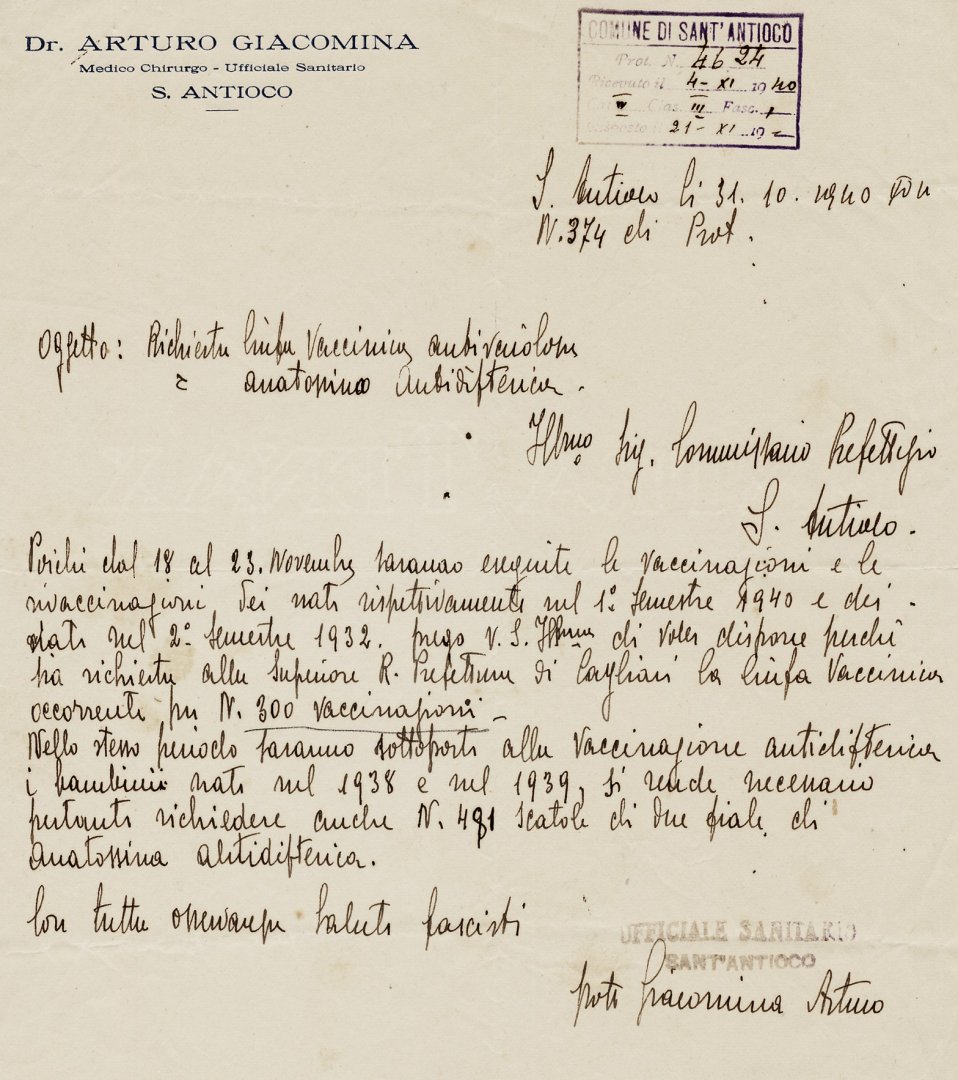 Dr. ARTURO GIACOMINA
Medico Chirurgo - Ufficiale Sanitario
S. ANTIOCO
COMUNE DI SANT'ANTIOCO
Prot. N. 4624
Ricevuto il 4 - XI 1940
Cat. Clas. III Fasc. 1
Risposto il 21 - XI 19
S. Antioco li 31. 10. 1940
N. 374 di Prot.
Oggetto: Richiesta linfa Vaccinica antivaiolosa
" anatossina Antidifterica.
Ill.mo Sig. Commissario Prefettizio
S. Antioco.
Poichè dal 18 al 23. Novembre saranno eseguite le vaccinazioni e le
rivaccinazioni, dei nati rispettivamente nel 1° Semestre 1940 e dei
nati nel 2° Semestre 1932. prego V. S. Ill.ma di voler disporre perchè
sia richiesta alla Superiore R. Prefettura di Cagliari la linfa Vaccinica
occorrente per N. 300 vaccinazioni -
Nello stesso periodo saranno sottoposti alla vaccinazione antidifterica
i bambini nati nel 1938 e nel 1939, si rende necessario
pertanto richiedere anche N. 481 scatole di due fiale di
Anatossina antidifterica.
Con tutta osservanza Saluti fascisti
UFFICIALE SANITARIO
SANT'ANTIOCO
Giacomina Arturo